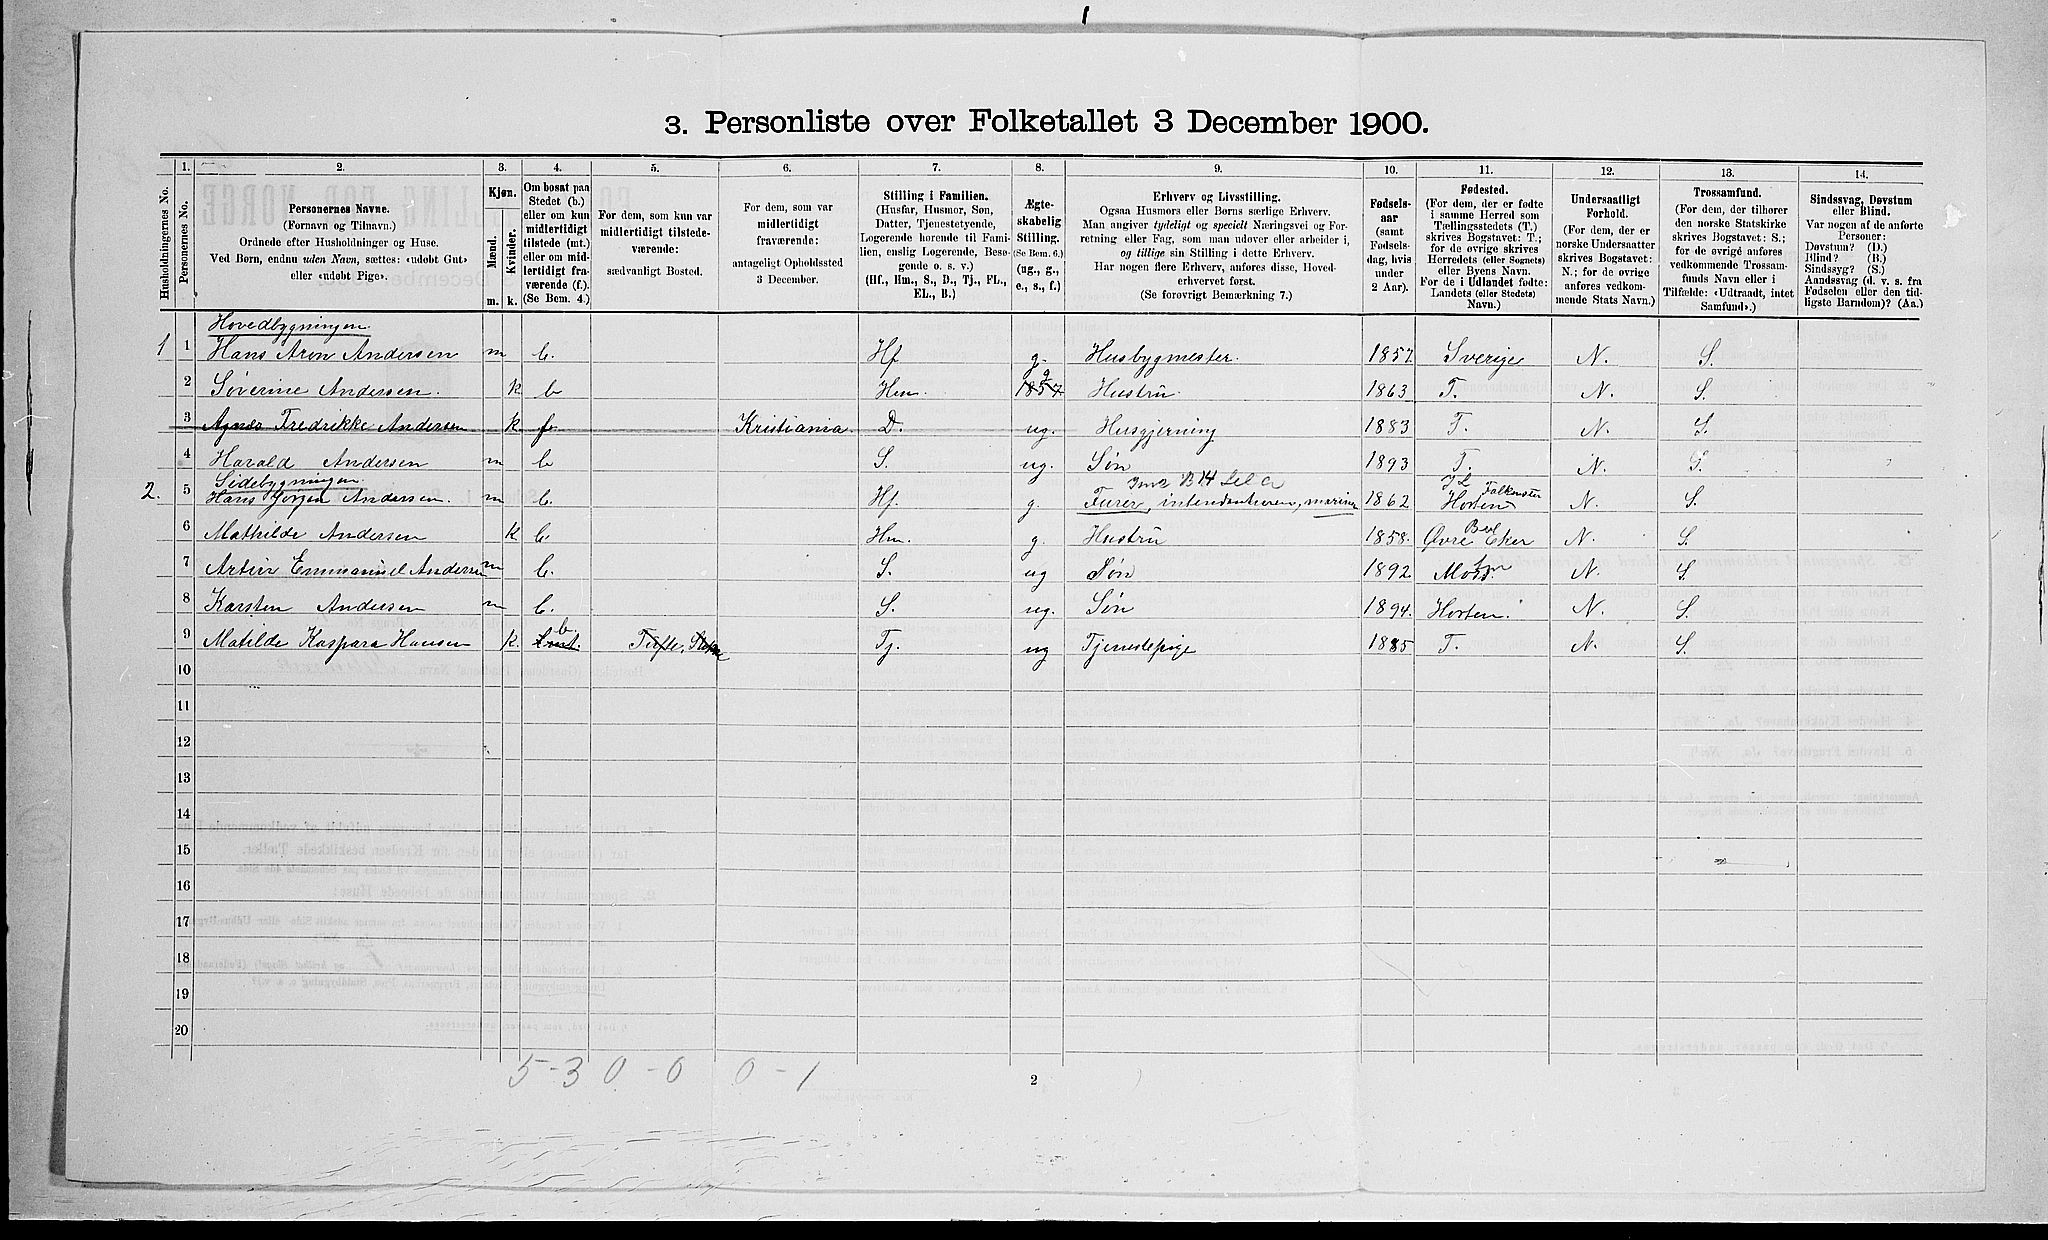 3. Personliste over Folketallet 3 December 1900.
1. 2. 3. 4. 5. 6. 7. 8. 9. 10. 11. 12. 13. 14.
Husholdningernes No.
Personernes No.
Personernes Navne.
(Fornavn og Tilnavn.)
Ordnede efter Husholdninger og Huse.
Ved Børn, endnu uden Navn, sættes: «udøbt Gut»
eller «udøbt Pige».
Kjøn.
Mænd.
Kvinder.
m. k.
Om bosat paa
Stedet (b.)
eller om kun
midlertidigt
tilstede (mt.)
eller om mid-
lertidigt fra-
værende (f.)
(Se Bem. 4.)
For dem, som kun var
midlertidigt tilstede-
værende:
sædvanligt Bosted.
For dem, som var
midlertidigt
fraværende:
antageligt Opholdssted
3 December.
Stilling i Familien.
(Husfar, Husmor, Søn,
Datter, Tjenestetyende,
Logerende hørende til Fami-
lien, enslig Logerende, Besø-
gende o. s. v.)
(Hf., Hm., S., D., Tj., FL.,
EL., B.)
Ægte-
skabelig
Stilling.
(Se Bem. 6.)
(ug., g.,
e., s., f.)
Erhverv og Livsstilling.
Ogsaa Husmors eller Børns særlige Erhverv.
Man angiver tydeligt og specielt Næringsvei og For-
retning eller Fag, som man udøver eller arbeider i,
og tillige sin Stilling i dette Erhverv.
Har nogen flere Erhverv, anføres disse, Hoved-
erhvervet først.
(Se forøvrigt Bemærkning 7.)
Fødsels-
aar
(samt
Fødsels-
dag, hvis
under
2 Aar).
Fødested.
(For dem, der er fødte
i samme Herred som
Tællingsstedets (T.)
skrives Bogstavet: T.;
for de øvrige skrives
Herredets (eller Sognets)
eller Byens Navn.
For de i Udlandet fødte:
Landets (eller Stedets)
Navn.)
Undersaatligt
Forhold.
(For dem, der er
norske Undersaatter
skrives Bogstavet:
N.; for de øvrige
anføres vedkom-
mende Stats Navn.)
Trossamfund.
(For dem, der tilhører
den norske Statskirke
skrives Bogstavet: S.;
for de øvrige anføres
vedkommende Trossam-
funds Navn eller i
Tilfælde: «Udtraadt, intet
Samfund».)
Sindssvag, Døvstum
eller Blind.
Var nogen af de anførte
Personer:
Døvstum? (D.)
Blind? (B.)
Sindssyg? (S.)
Aandssvag (d. v. s. fra
Fødselen eller den tid-
ligste Barndom)? (Aa.)
Hovedbygningen.
1 1 Hans Aron Andersen m b. Hf g. Husbygmester. 1857. Sverige N. S.
2 Søverine Andersen. k b Hm. 1857. g Hustru. 1863 T. N. S.
3 Agnæs Fredrikke Andersen k f. Kristiania. D. ug. Husgjerning 1883 T. N. S.
4 Harald Andersen m b S. ug. Søn 1893 T. N. S.
Sidebygningen.
2. 5 Hans Jørgen Andersen. m b. Hf. g. Furer, intendanturen, marinen 1862 Horten Falkensten N. S.
6 Mathilde Andersen k b. Hm. g. Hustru 1858. Øvre Eker N. S.
7 Artur Emmanuel Andersen m b. S. ug Søn 1892. Moss. N. S.
8 Karsten Andersen m b. S. ug. Søn 1894. Horten. N. S.
9 Matilde Kaspara Hansen k. b Tufte, Tj. ug Tjenestepige 1885 T. N. S.
10
11
12
13
14
15
16
17
18
19
20
5-3 0-0 0-1
2